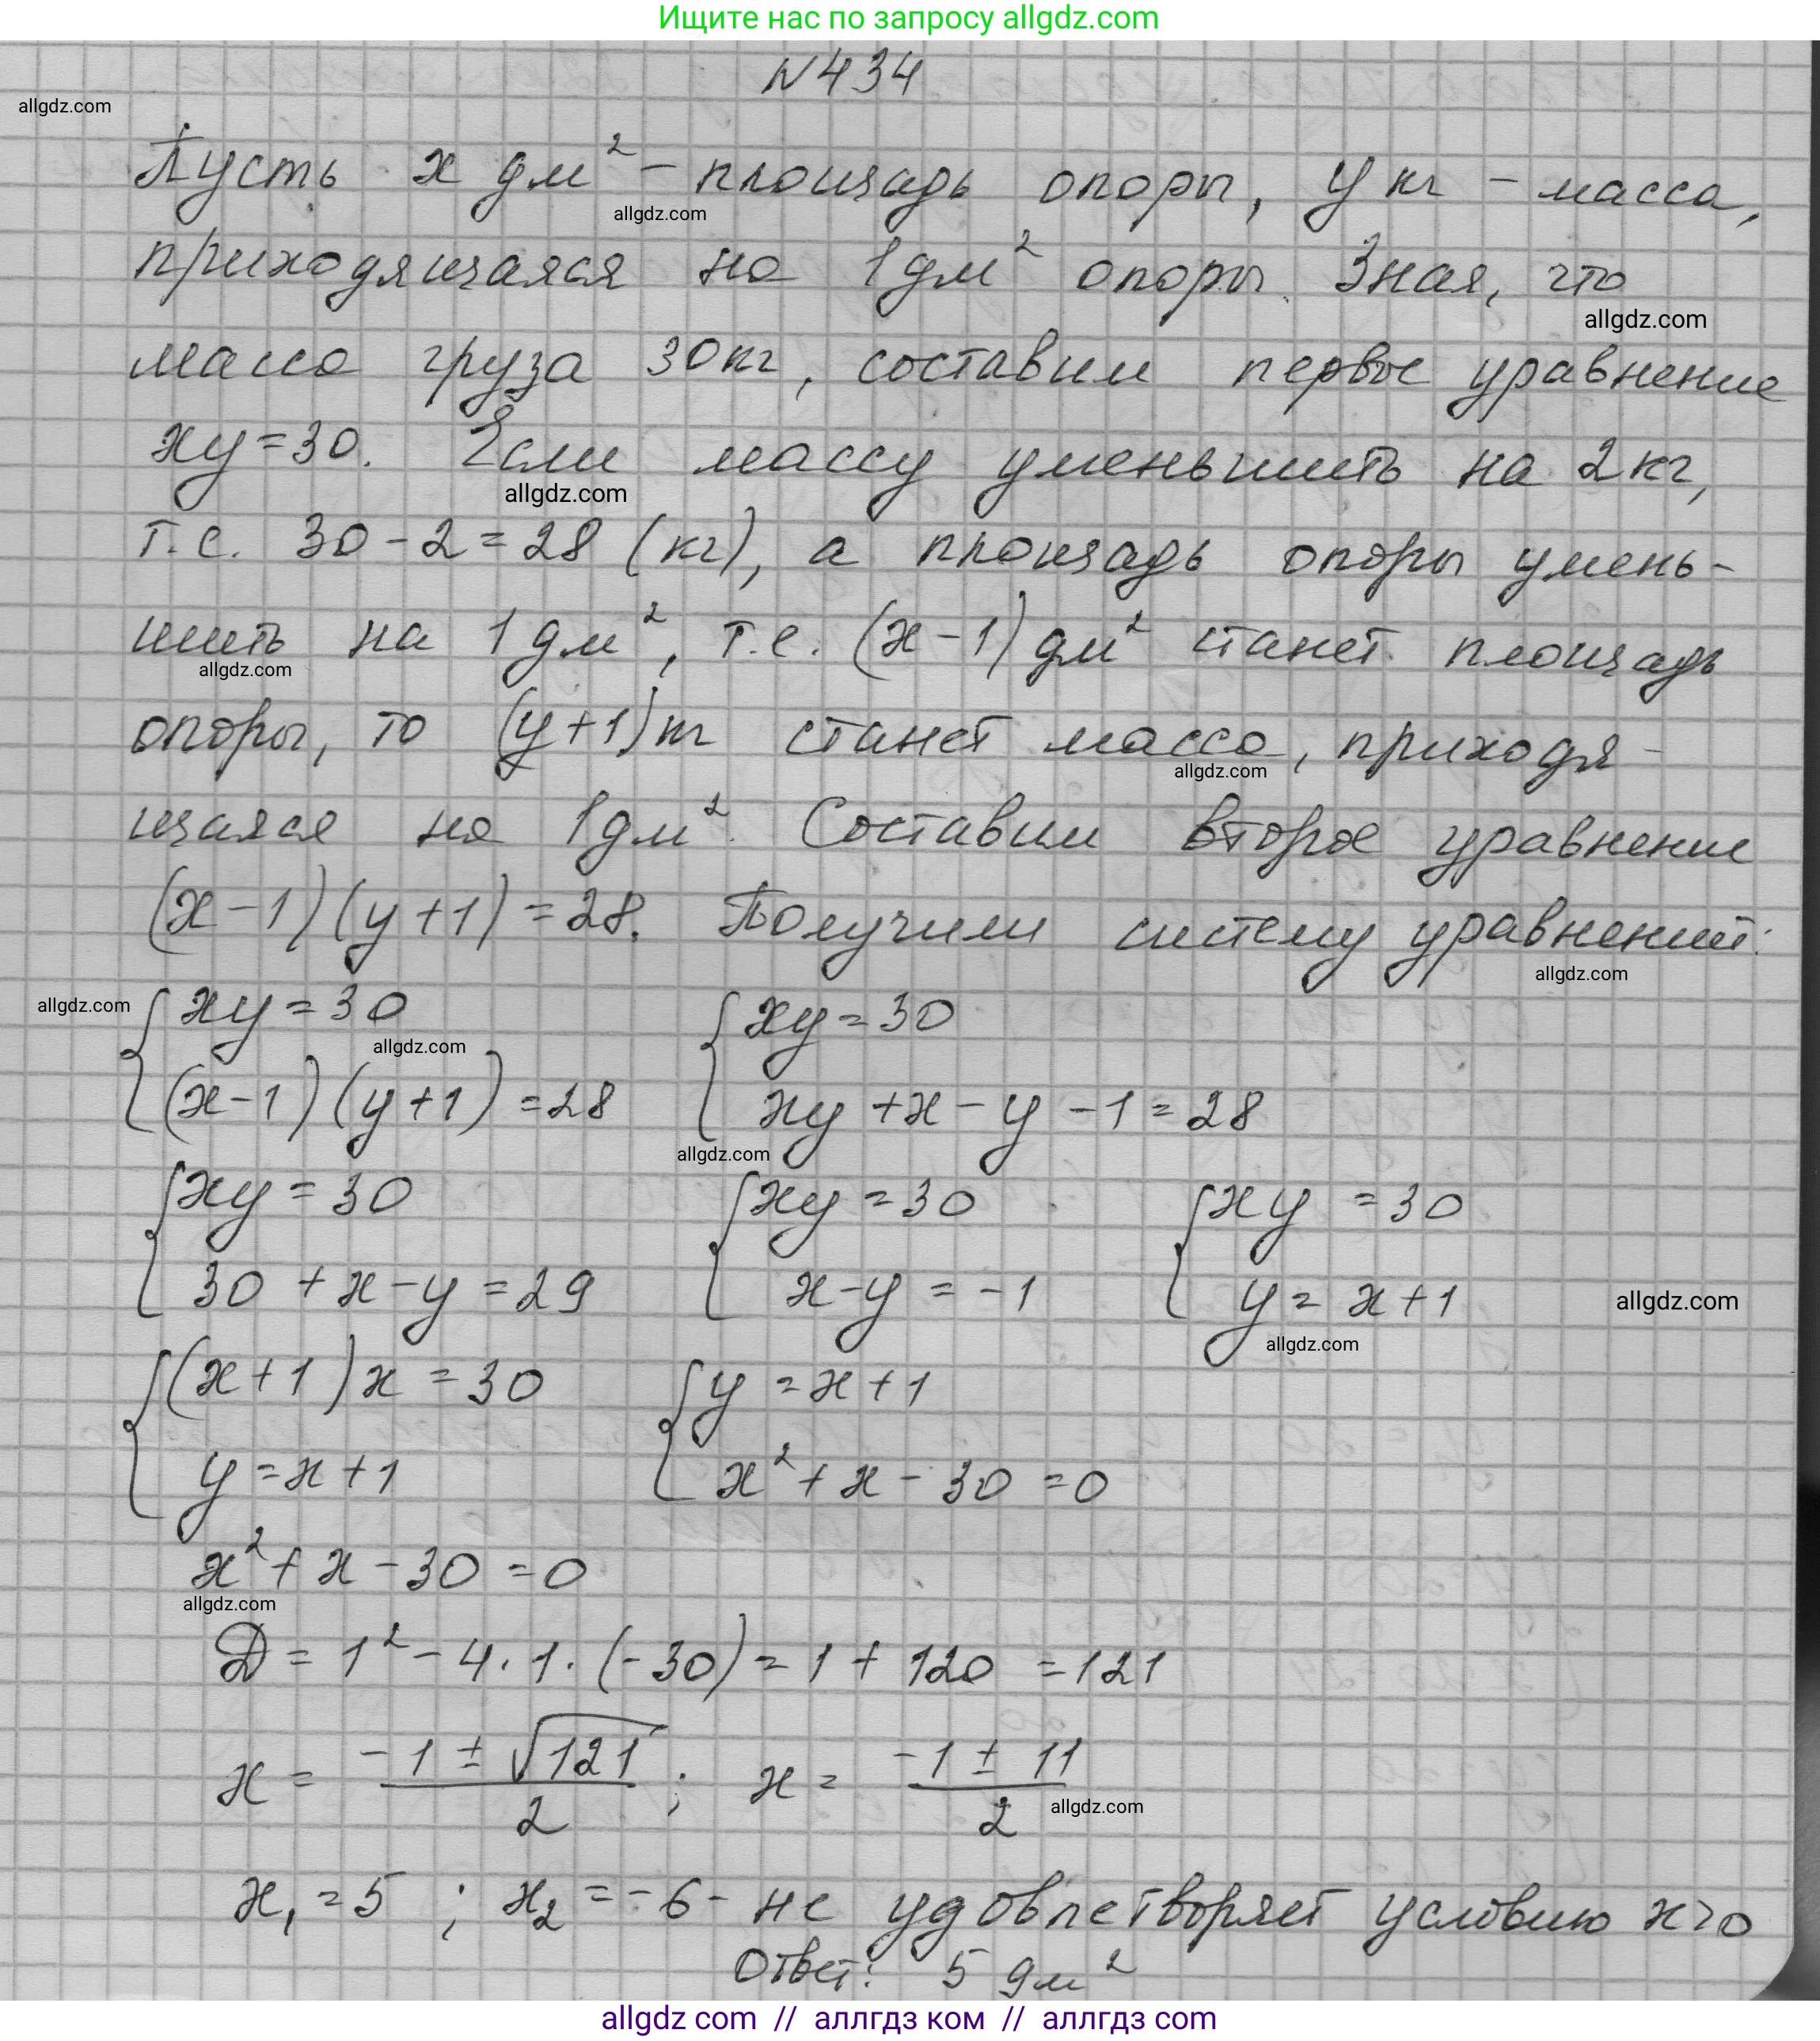 Ищите нас по запросу allgdz.com
№434
allgdz.com
Пусть x дм² – площадь опоры, y кг – масса,
allgdz.com
приходящаяся на 1 дм² опоры. Зная, что
allgdz.com
масса груза 30 кг, составим первое уравнение
xy = 30. Если массу уменьшить на 2 кг,
allgdz.com
т.е. 30 - 2 = 28 (кг), а площадь опоры умень-
шить на 1 дм², т.е. (x - 1) дм² станет площадь
allgdz.com
опоры, то (y + 1) кг станет масса, приходя-
allgdz.com
щаяся на 1 дм². Составим второе уравнение
(x - 1)(y + 1) = 28. Получили систему уравнений:
allgdz.com
allgdz.com
{ xy = 30 { xy = 30
allgdz.com
(x - 1)(y + 1) = 28 xy + x - y - 1 = 28
allgdz.com
{ xy = 30 { xy = 30 { xy = 30
30 + x - y = 29 x - y = -1 y = x + 1 allgdz.com
allgdz.com
{ (x + 1)x = 30 { y = x + 1
y = x + 1 x² + x - 30 = 0
x² + x - 30 = 0
allgdz.com
D = 1² - 4 · 1 · (-30) = 1 + 120 = 121
x = (-1 ± √121)/2 ; x = (-1 ± 11)/2
allgdz.com
x₁ = 5 ; x₂ = -6 - не удовлетворяет условию x > 0
Ответ: 5 дм²
allgdz.com // аллгдз ком // allgdz.com